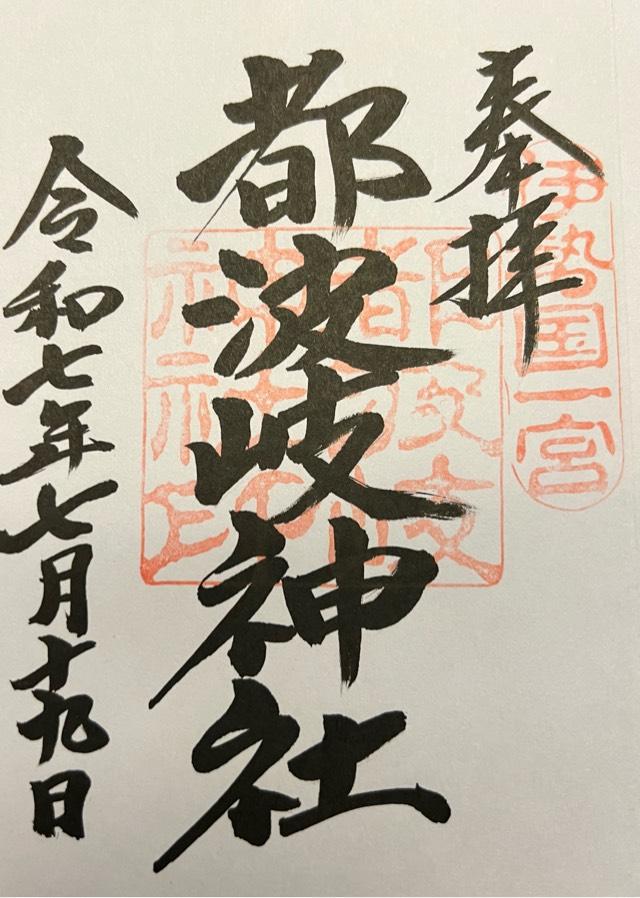 奉拝
伊勢国一宮
都波岐神社
令和七年七月十九日